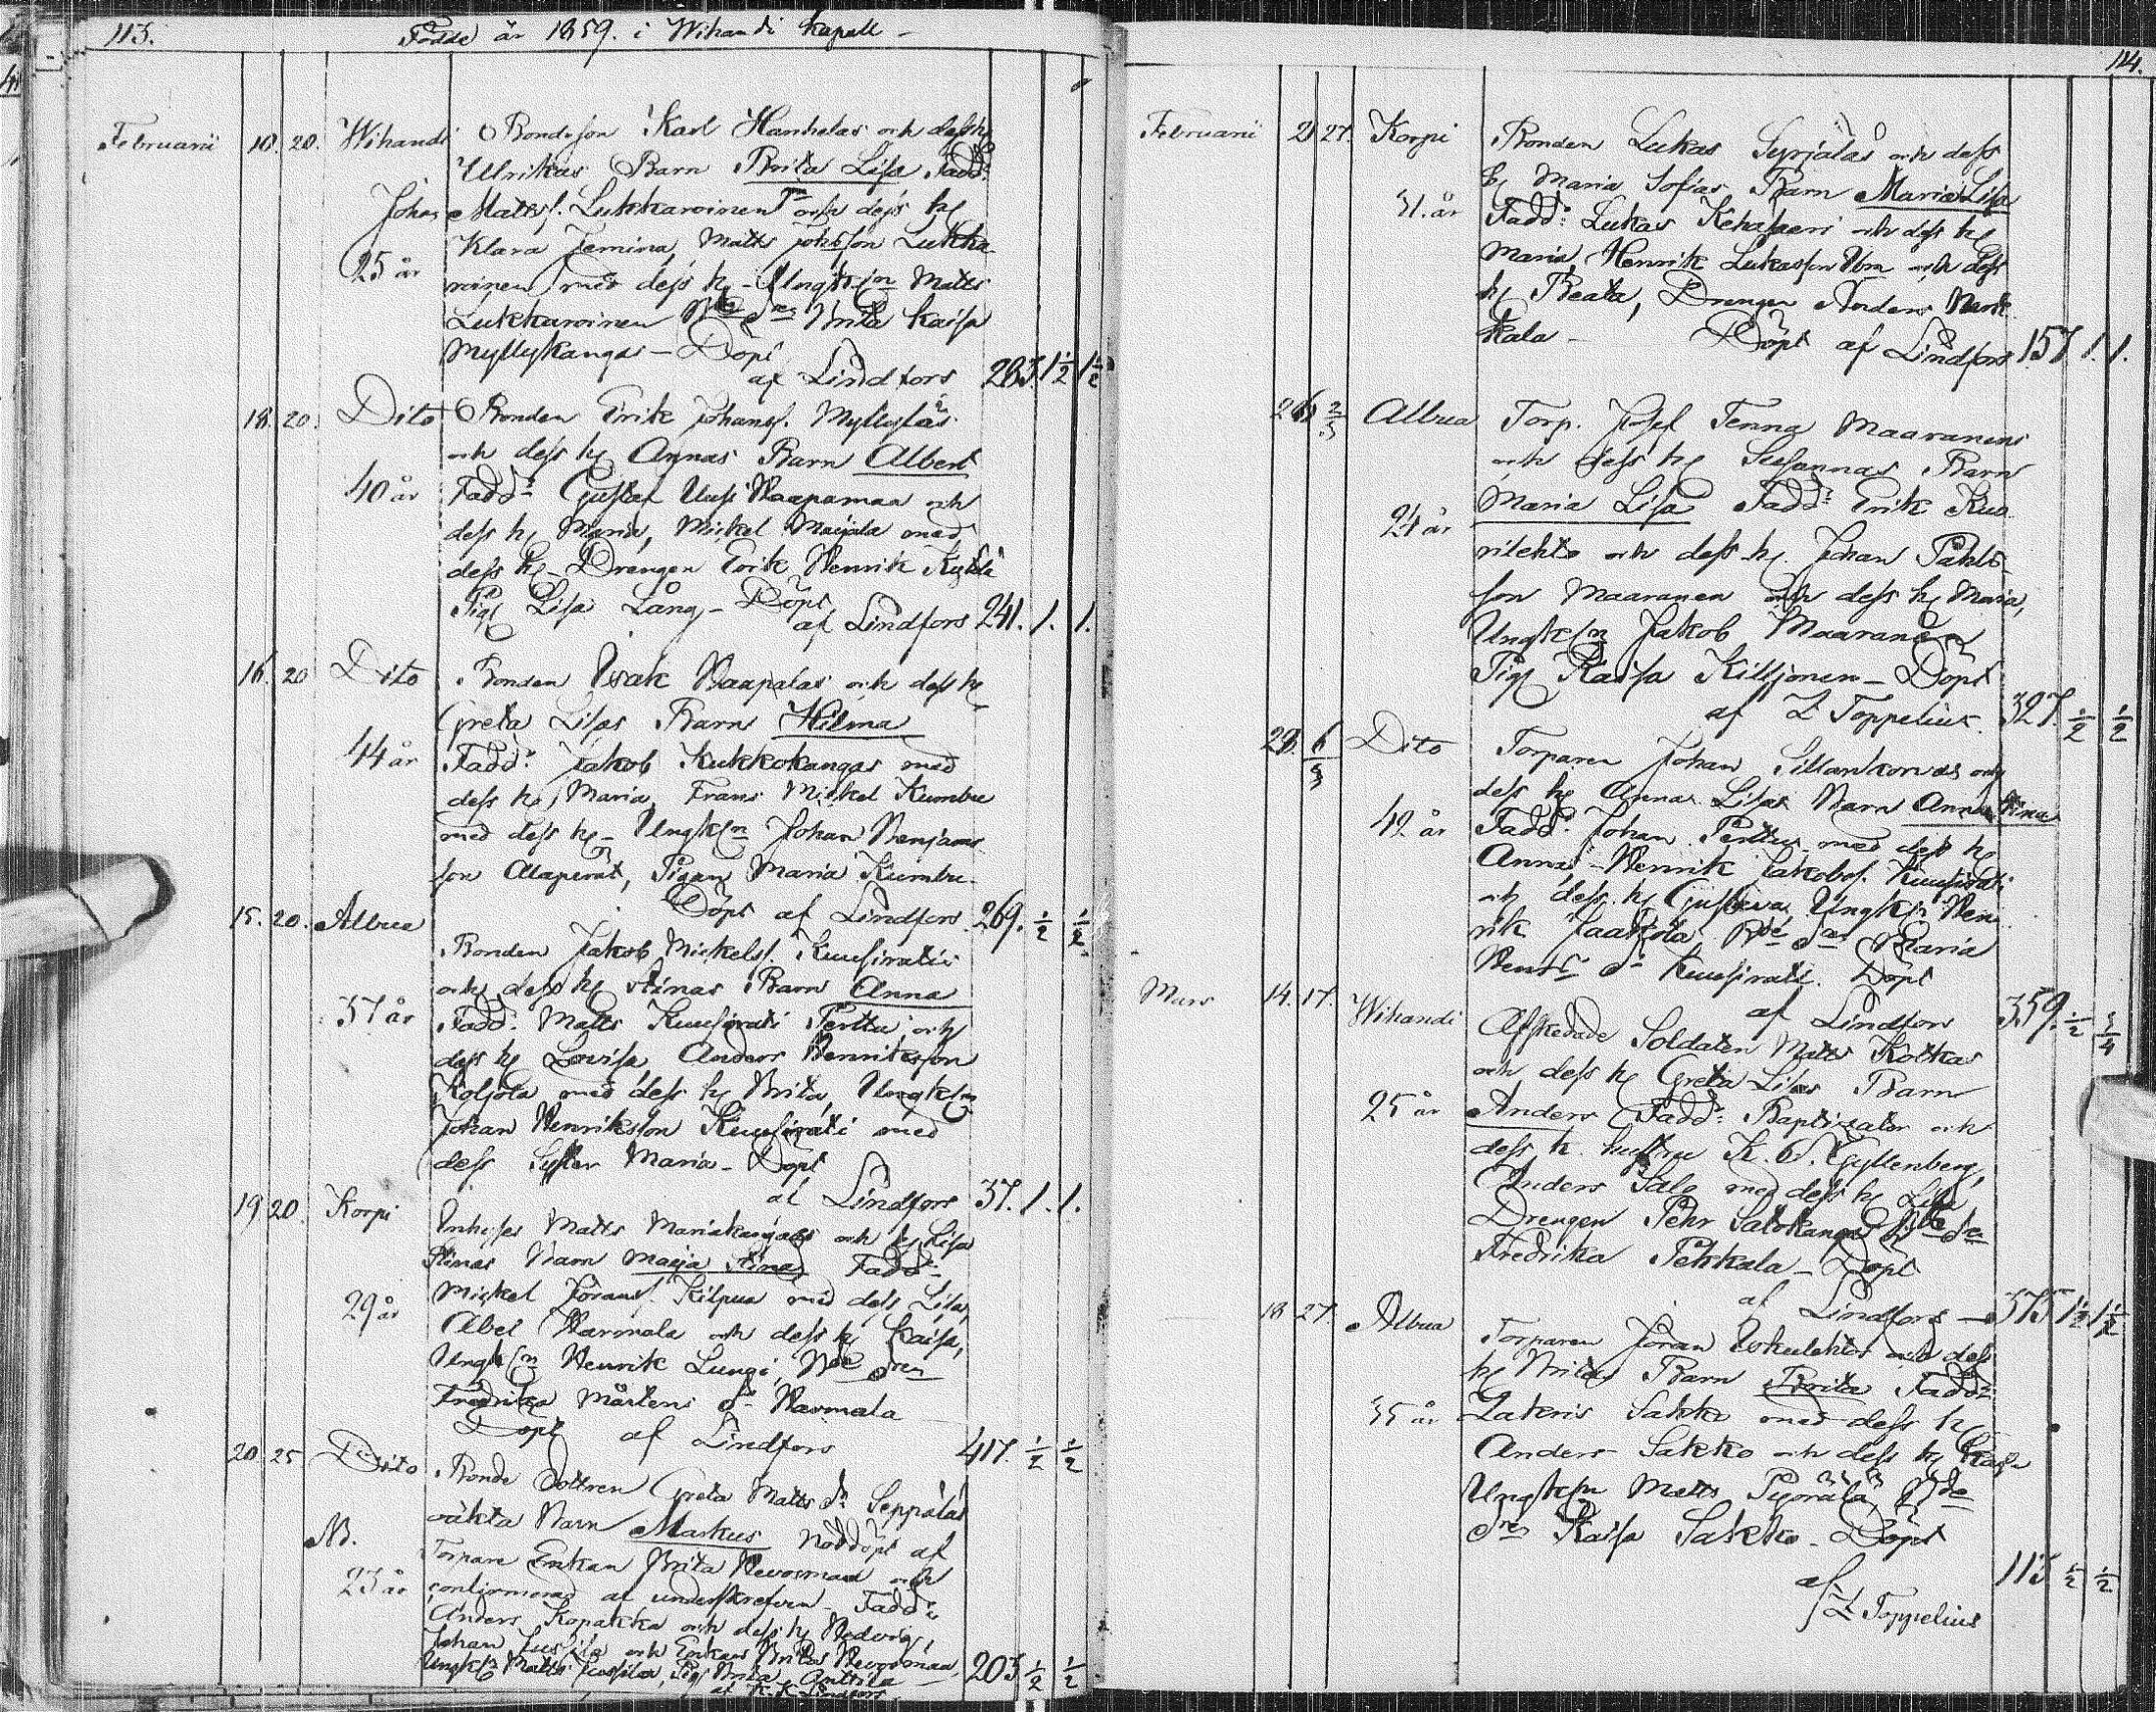 113. Födde år 1859. i Wihandi Kapell -
Februarii 10. 20. Wihandi Bondeson Karl Hanhelas och dess h.
Ulrikas Barn Brita Lisa Fadd:
Johan Matts s. Lukkaroinen och dess h.
Klara Jemina, Matts Johsson Lukka-
25 år roinen med dess h. - Ungk n Matts
Lukkaroinen Brita Kaisa
Myllykangas - Döpt
af Lindfors 283. 1½ 1½
18. 20. Dito Bonden Erik Johans s. Myllyläs
och dess h. Annas Barn Albert
40 år Fadd: Gustaf Uusi Haapamaa och
dess h. Maria, Mickel Maijala med
dess h. - Drengen Erik Henrik Kylli
Pig. Lisa Lång - Döpt
af Lindfors 241. 1. 1.
16. 20 Dito Bonden Isak Haapalas och dess h.
Greta Lisas Barn Hilma
44 år Fadd: Jakob Kukkokangas med
dess h. Maria, Frans Mickel Kumbu
med dess h. - Ungk n Johan Benjams
son Alaperät, Pigan Maria Kumbu -
Döpt af Lindfors 269. ½ ½
15. 20. Albua
Bonden Jakob Mickels s. Kuusiratis
och dess h. Stinas Barn Anna
37 år Fadd: Matts Kuusirati Perttu och
dess h. Lovisa, Anders Henriksson
Koljola med dess h. Brita, Ungk n
Johan Henriksson Kuusirati med
dess Syster Maria - Döpt
af Lindfors 37. 1. 1.
19 20. Korpi Inhyses Matts Mariakangas och h. Lisa
Stinas Barn Maija Stina Fadd:
Mickel Görans s. Kilpua med dess Lisa,
29 år Abel Warmala och dess h. Kaisa,
Ungk n Henrik Lungi,
Fredrika Mårtens d. Warmala
Döpt af Lindfors 417. ½ ½
20 25 Dito Bonde dottren Greta Matts dr Seppäläs
oäkta Barn Markus nöddöpt af
NB. Torpare Enkan Brita Hevosmaa och
23 år confirmerad af underskrefven - Fadd:
Anders Kopakka och dess h. Hedvig,
Johan Jussila och Enkan Brita Hevosmaa,
Ungk n Matts Jussila, Pig. Brita Anttila 203 ½ ½
af K. K. Lindfors
114.
Februarii 21 27. Korpi Bonden Lukas Syrjäläs och dess
h. Maria Sofias Barn Maria Lisa
31. år Fadd: Lukas Kehataeri och dess h.
Maria, Henrik Lukasson och dess
h. Beata, Drengen Anders Mark
kala - Döpt af Lindfors 157 1. 1.
26 2/3 Albua Torp. Josef Tenna Maaranens
och dess h. Susannas Barn
Maria Lisa Fadd: Erik Kuo
24 år rilehto och dess h. Johan Påhls-
son Maaranen och dess h. Maria,
Ungk n Jakob Maaranen
Pig. Kaisa Killjonen - Döpt
af Z Toppelius. 327. ½ ½
28. 6/3 Dito Torparen Johan Sillankorvas och
dess h. Anna Lisas Barn Anna Stina
42 år Fadd: Johan Perttu med dess h.
Anna - Henrik Jakobs s. Kuusirati
och dess h. Gustava, Ungk n Hen
rik Jaakola Maria
Henr s dr Kuusirati. Döpt
af Lindfors 359. ½ ¾
Mars 14. 17. Wihandi Afskedade Soldaten Matts Kotkas
och dess h. Greta Lisas Barn
25 år Anders Fadd: Baptisator och
dess k. hustru K. S. Gyllenberg,
Anders Salo med dess h. Lisa
Drengen Pehr Salokangas
Fredrika Pekkala - Döpt
af Lindfors - 375 1½ 1½
18 27. Albua Torparen Jöran Eskulehtos och dess
h. Britas Barn Brita Fadd:
35 år Zakris Sakko med dess h.
Anders Sakko och dess h. Kaisa
Ungk n Matts Pyörälä,
Kaisa Sakko - Döpt
af Z Toppelius 113 ½ ½